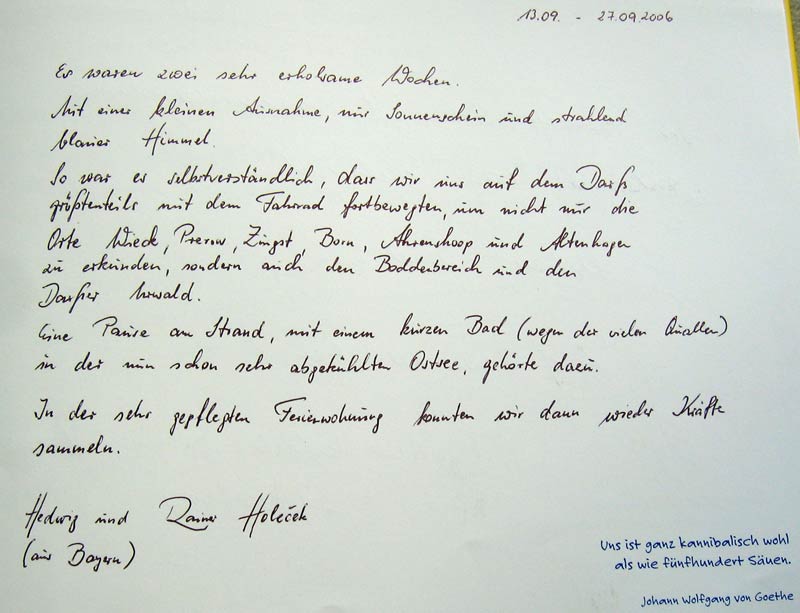 13.09. - 27.09.2006
Es waren zwei sehr erholsame Wochen.
Mit einer kleinen Ausnahme, nur Sonnenschein und strahlend
blauer Himmel.
So war es selbstverständlich, dass wir uns auf dem Darß
größtenteils mit dem Fahrrad fortbewegten, um nicht nur die
Orte Wieck, Prerow, Zingst, Born, Ahrenshoop und Altenhagen
zu erkunden, sondern auch den Boddenbereich und den
Darßer Urwald.
Eine Pause am Strand, mit einem kurzen Bad (wegen der vielen Quallen)
in der nun schon sehr abgekühlten Ostsee, gehörte dazu.
In der sehr gepflegten Ferienwohnung konnten wir dann wieder Kräfte
sammeln.
Hedwig und Rainer Holeček
(aus Bayern)
Uns ist ganz kannibalisch wohl
als wie fünfhundert Säuen.
Johann Wolfgang von Goethe